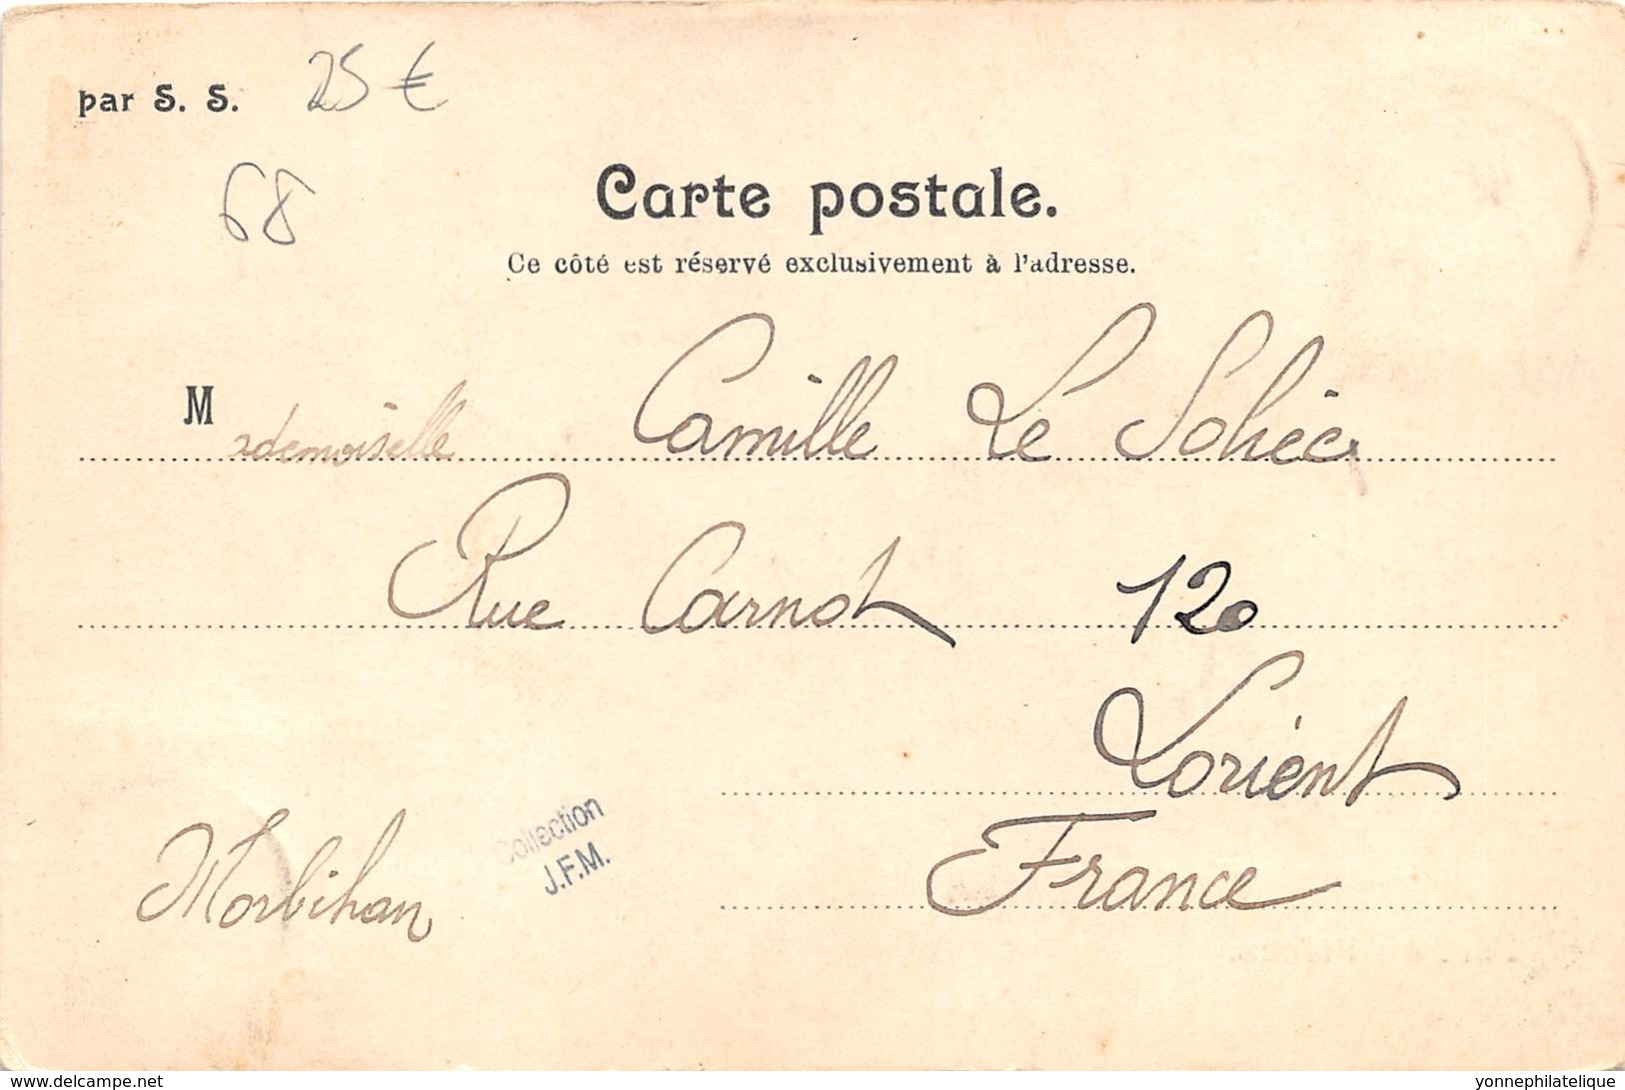 par S. S. 25 €
68
Carte postale.
Ce côté est réservé exclusivement à l'adresse.
Mademoiselle Camille Le Sohéec
Rue Carnot 120
Lorient
France
Morbihan
Collection
J.F.M.
www.delcampe.net
yonnephilatelique